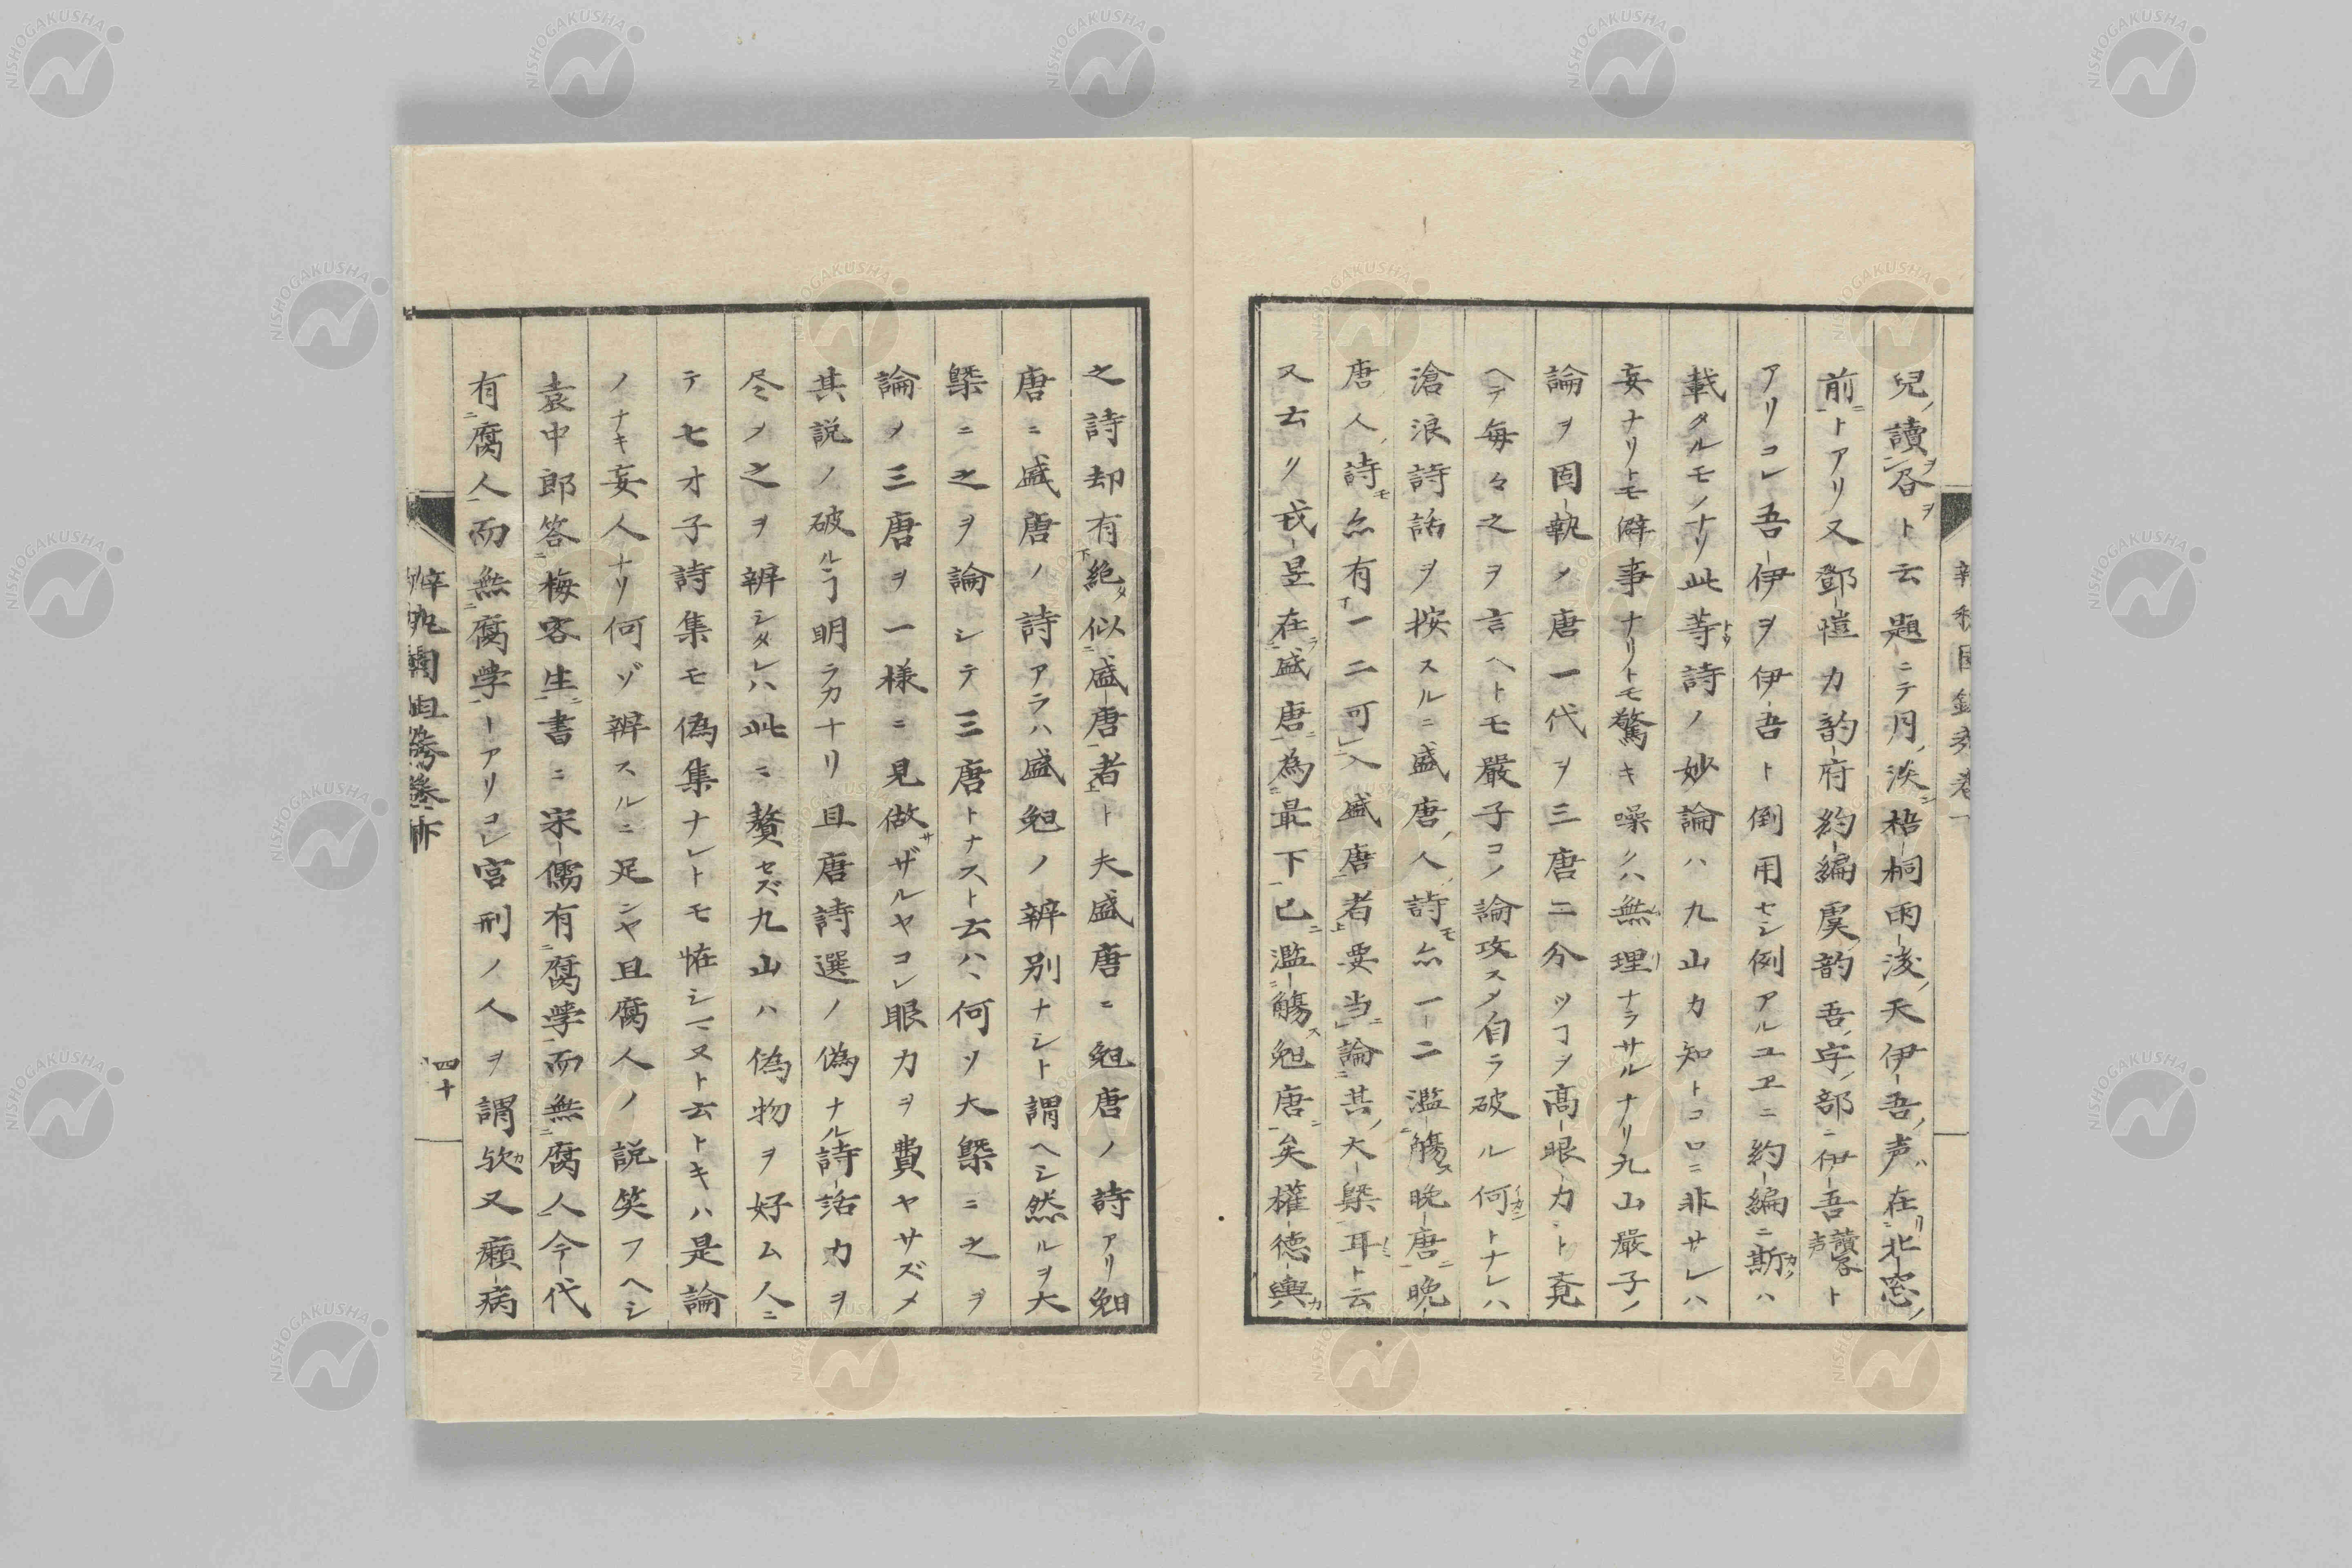 兒讀呇ト云題ニテ月淡梧桐雨後天伊吾声在北窓
前トアリ又鄧愷カ韵府約編虞韵吾字部ニ伊吾讀書声ト
アリコレ吾伊ヲ伊吾ト倒用セシ例アルユヱニ約編ニ斯ハ
載タルモノナリ此等詩ノ妙論ハ九山カ知トコロニ非サレハ
妄ナリトモ僻事ナリトモ驚キ噪クハ無理ナラサルナリ九山嚴子ノ
論ヲ固執メ唐一代ヲ三唐ニ分ツヿヲ高眼力ト覔
ヘテ毎々之ヲ言ヘトモ嚴子コノ論攻スメ自ラ破ル何トナレハ
滄浪詩話ヲ按スルニ盛唐人詩亦一二濫觴晩唐晩
唐人詩亦有一二可入盛唐者要当論其大槩耳ト云
又云リ戎昱在盛唐為最下已濫觴晩唐矣權德輿
之詩却有絶似盛唐者ト夫盛唐ニ晩唐ノ詩アリ晩
唐ニ盛唐ノ詩アラハ盛晩ノ辨別ナシト謂ヘシ然ルヲ大
槩ニ之ヲ論シテ三唐トナスト云ハヽ何ソ大槩ニ之ヲ
論メ三唐ヲ一樣ニ見做サザルヤコレ眼力ヲ費ヤサズメ
其説ノ破ルヿ明ラカナリ且唐詩選ノ偽ナル詩話カヲ
尽メ之ヲ辨シタレハ此ニ贅セズ九山ハ偽物ヲ好ム人ニ
テ七才子詩集モ偽集ナレトモ恠シマヌト云トキハ是論
ノナキ妄人ナリ何ゾ辨スルニ足ンヤ且腐人ノ説笑フヘシ
袁中郎答梅客生書ニ宋儒有腐學而無腐人今代
有腐人而無腐学ーアリコレ宮刑ノ人ヲ謂欤又癩病
四十